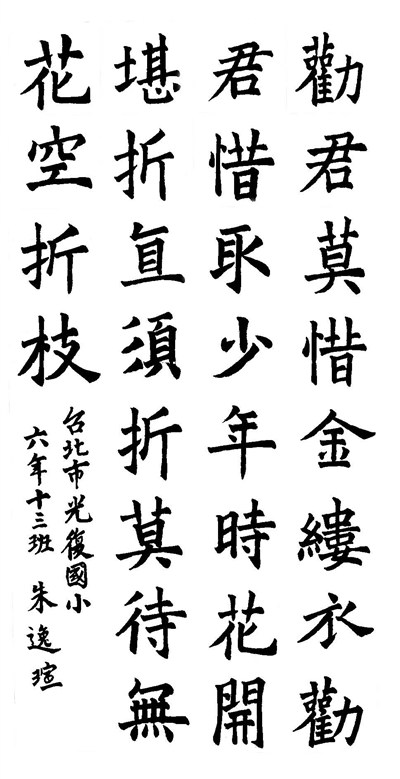 勸君莫惜金縷衣勸
君惜取少年時花開
堪折直須折莫待無
花空折枝
台北市光復國小
六年十三班 朱逸瑄